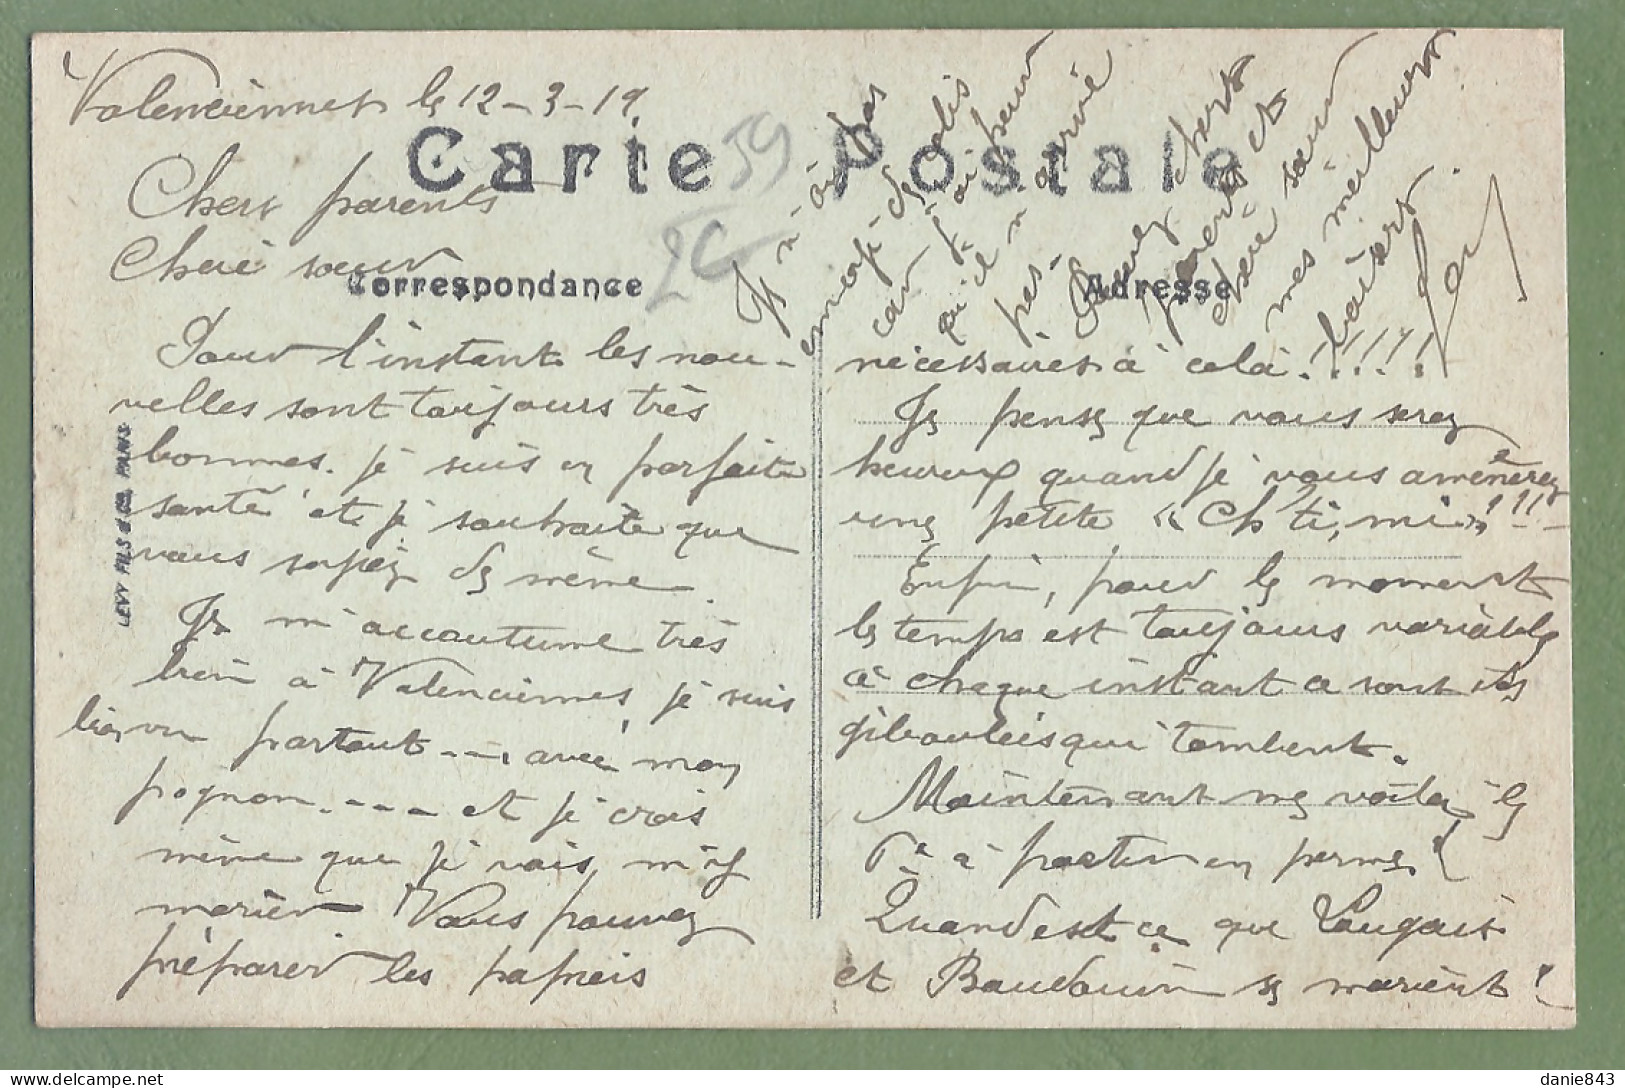 Valenciennes le 12-3-19.
Carte Postale
59
Chers parents
Cheré soeur
Correspondance
Adresse
Pour l'instant les nou-
velles sont toujours très
bonnes. je suis en parfaite
santé et je souhaite que
vous soyiez de même.
Je m'accoutume très
bien à Valenciennes, je suis
bien vu partout ---, avec mon
pognon.--- et je crois
même que je vais m'y
marier. Vous pouvez
préparer les papiers
nécessaires à celà!!!!!
Je pense que vous serez
heureux quand je vous amènerez
une petite « Ch'ti, mi »!!!
Enfin, pour le moment
le temps est toujours variable
à chaque instant ce sont des
giboulées qui tombent.
Maintenant me voilà, le
à partir en perme!
Quand est ce que Laugais
et Baudouin se marient!
Je n'ai pas
envoyé de colis
car j'ai peur
qu'il n'arrive
pas.
Recevez chers
parents et
cheré soeur
mes meilleurs
baisers.
LEVY FILS & Co, PARIS
danie843